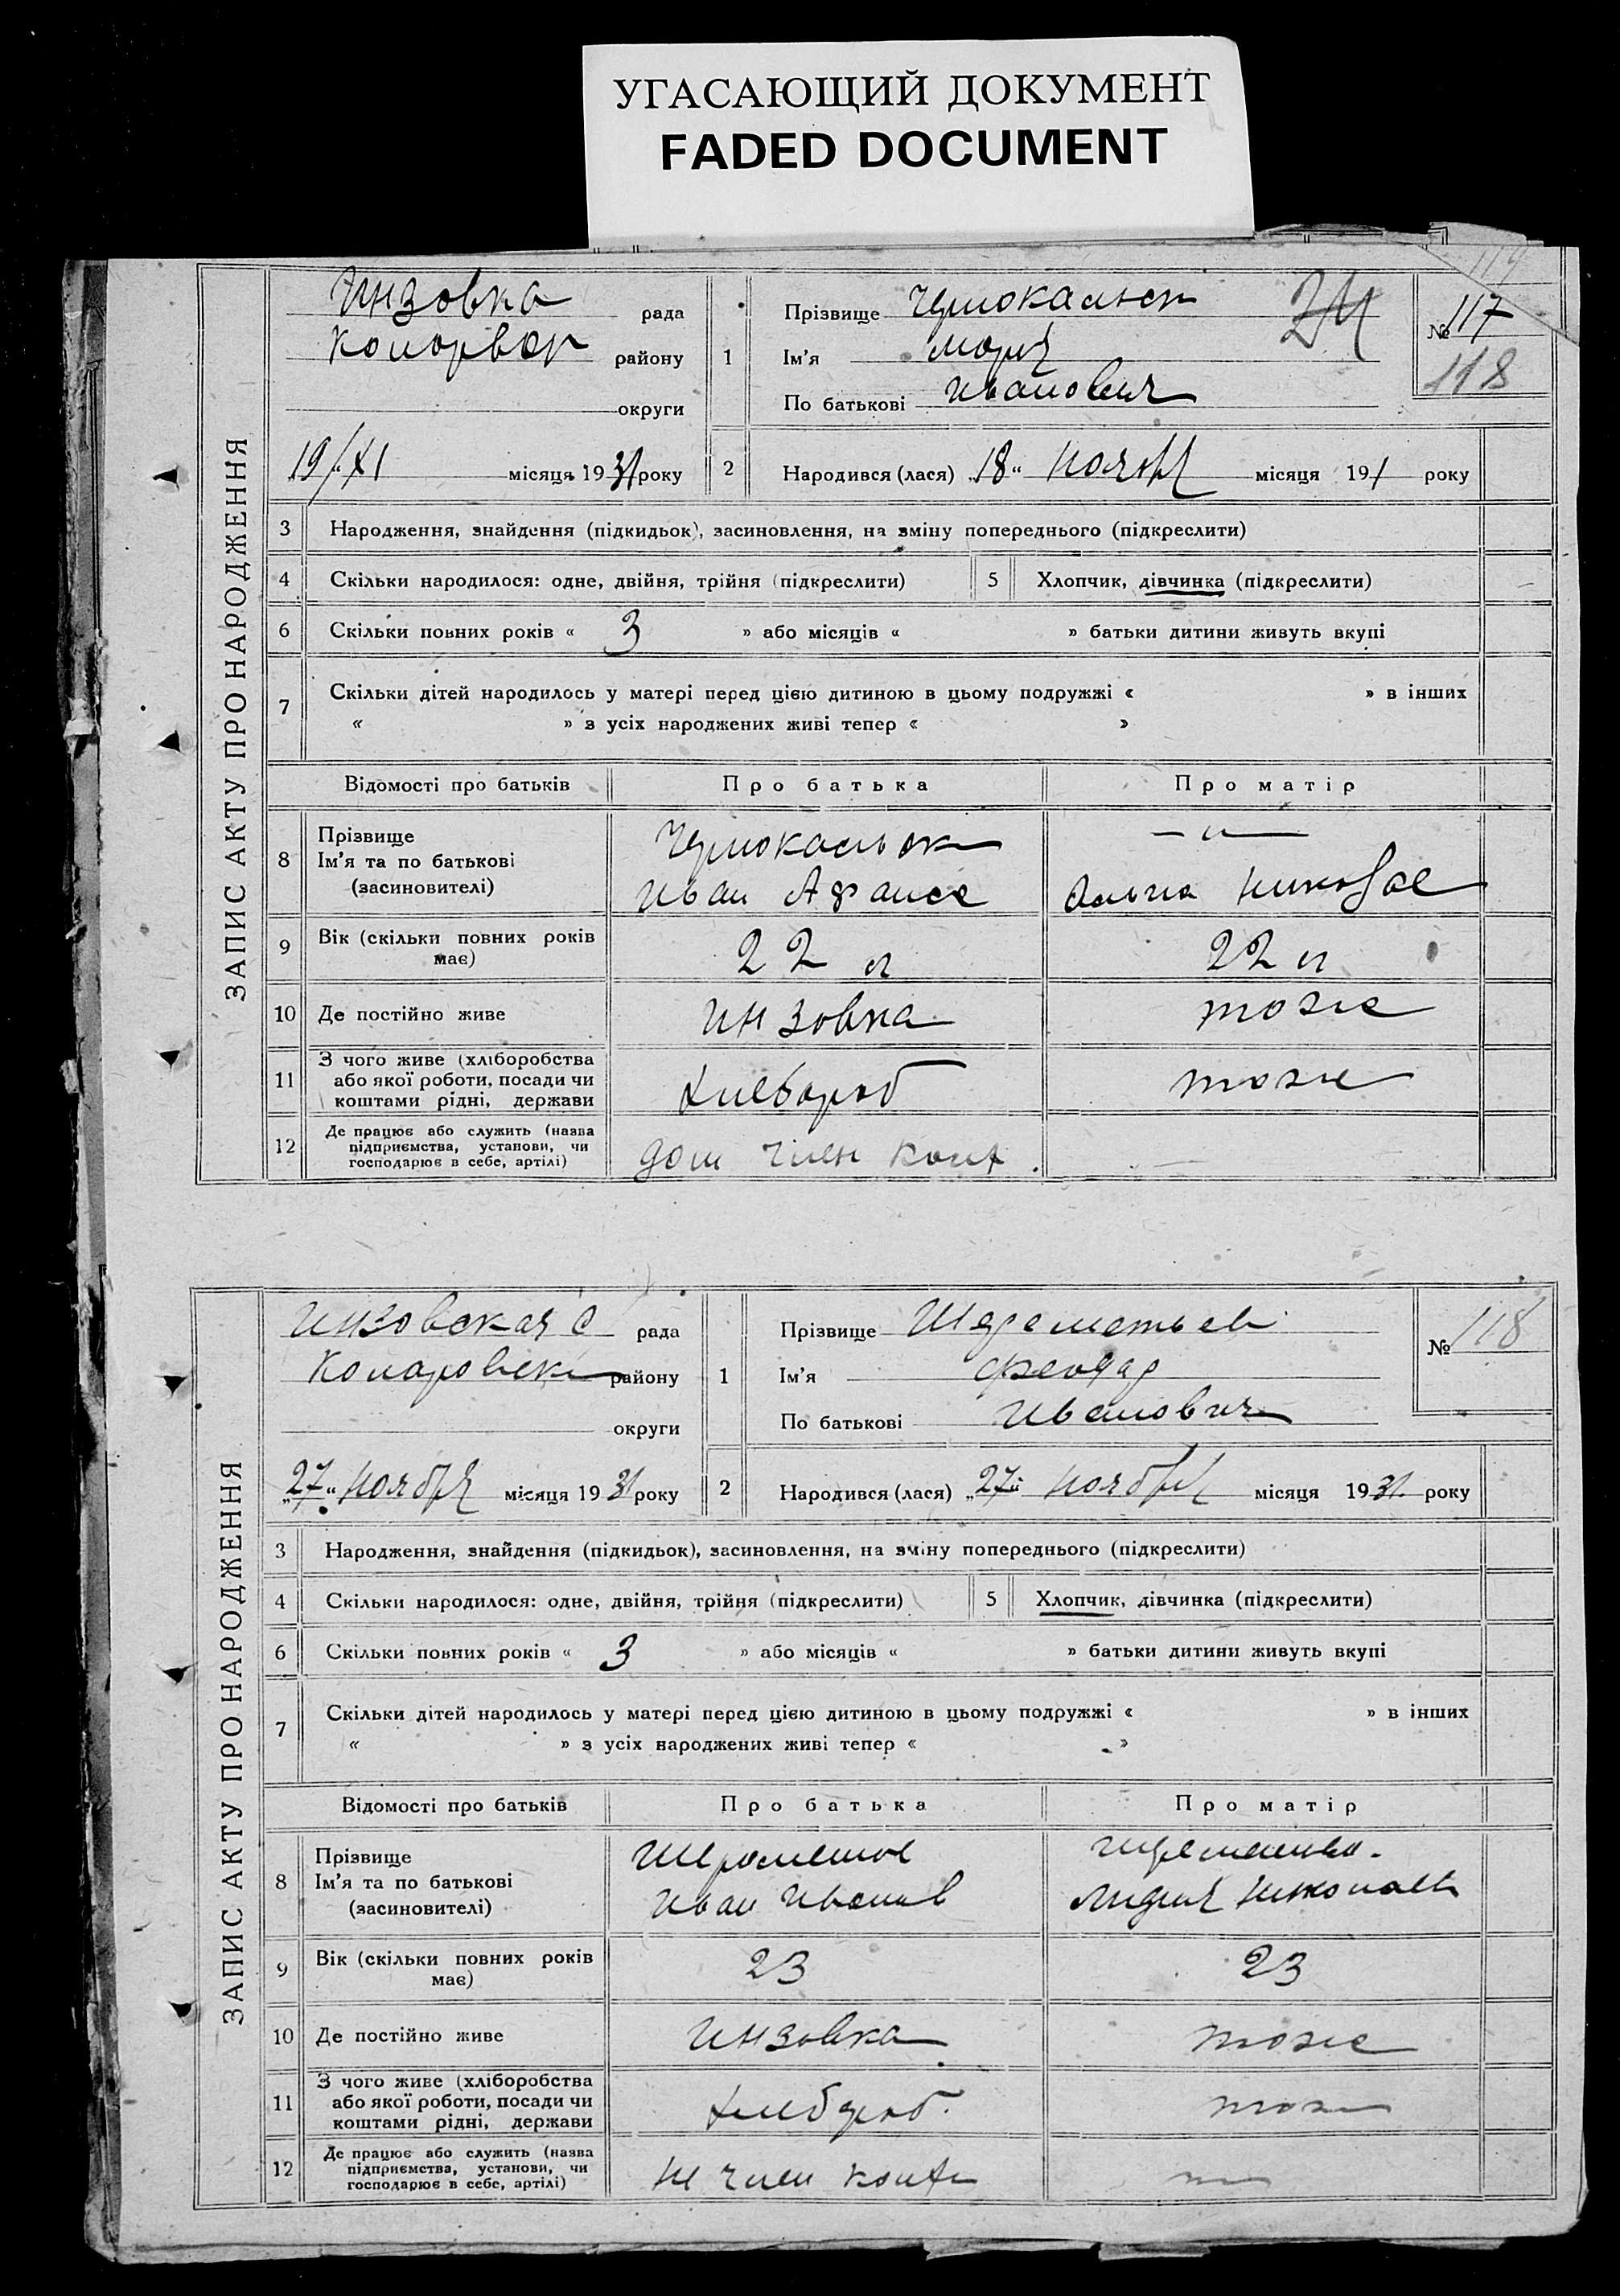 УГАСАЮЩИЙ ДОКУМЕНТ
FADED DOCUMENT
ЗАПИС АКТУ ПРО НАРОДЖЕННЯ
Инзовка рада
району
округи
19/XI місяця 1931 року
1 Прізвище
Ім'я Мария
По батькові Иванович
№ 117
118
2 Народився (лася) „18“ Ноября місяця 191 року
3 Народження, знайдення (підкидьок), засиновлення, на зміну попереднього (підкреслити)
4 Скільки народилося: одне, двійня, трійня (підкреслити) 5 Хлопчик, дівчинка (підкреслити)
6 Скільки повних років « 3 » або місяців « » батьки дитини живуть вкупі
7 Скільки дітей народилось у матері перед цією дитиною в цьому подружжі « » в інших
« » з усіх народжених живі тепер « »
Відомості про батьків Про батька Про матір
8 Прізвище — „ —
Ім'я та по батькові
(засиновителі) Иван
9 Вік (скільки повних років має) 22 л 22 л
10 Де постійно живе Инзовка тоже
11 З чого живе (хліборобства або якої роботи, посади чи коштами рідні, держави Хлебороб тоже
12 Де працює або служить (назва підприємства, установи, чи господарює в себе, артілі) член
ЗАПИС АКТУ ПРО НАРОДЖЕННЯ
Инзовская с рада
району
округи
„27“ Ноября місяця 1931 року
1 Прізвище Шереметьев
Ім'я Феодар
По батькові Иванович
№ 118
2 Народився (лася) „27“ Ноября місяця 1931. року
3 Народження, знайдення (підкидьок), засиновлення, на зміну попереднього (підкреслити)
4 Скільки народилося: одне, двійня, трійня (підкреслити) 5 Хлопчик, дівчинка (підкреслити)
6 Скільки повних років « 3 » або місяців « » батьки дитини живуть вкупі
7 Скільки дітей народилось у матері перед цією дитиною в цьому подружжі « » в інших
« » з усіх народжених живі тепер « »
Відомості про батьків Про батька Про матір
8 Прізвище
Ім'я та по батькові
(засиновителі) Иван Иванов Лидия Николаев
9 Вік (скільки повних років має) 23 23
10 Де постійно живе Инзовка тоже
11 З чого живе (хліборобства або якої роботи, посади чи коштами рідні, держави Хлебороб. тоже
12 Де працює або служить (назва підприємства, установи, чи господарює в себе, артілі) не член